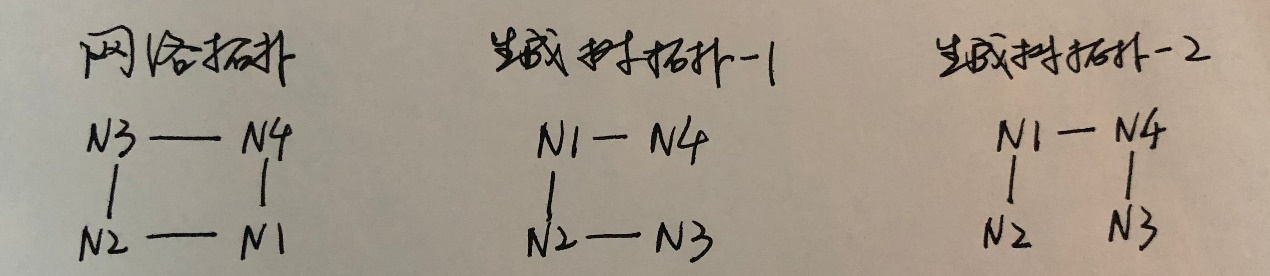 网络拓扑
N3 — N4
| |
N2 — N1
生成树拓扑-1
N1 — N4
|
N2 — N3
生成树拓扑-2
N1 — N4
| |
N2 N3